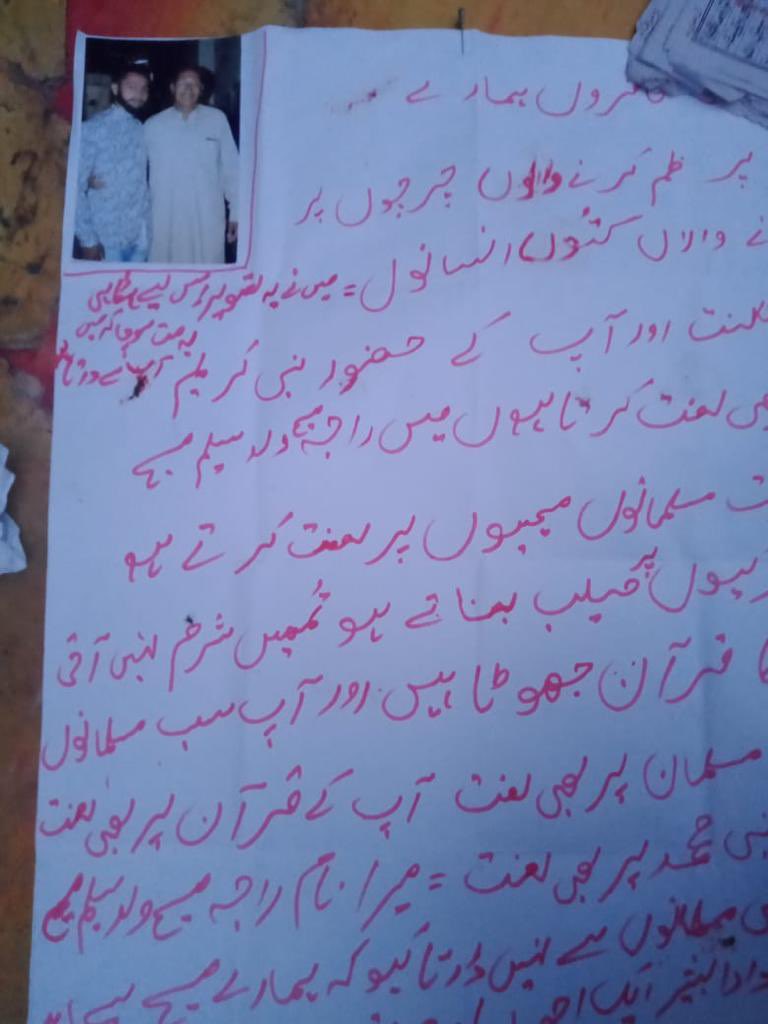 کافروں ہمارے
پر ظلم کرنے والوں چرچوں پر
نے والاں کتوں انسانوں = میں نے یہ تصویر اس لیے لگائی
یہ مت سوچنا کہ میں
آپ سے ڈرتا
لعنت اور آپ کے حضور نبی کریم
بھی لعنت کرتا ہوں میں راجہ مسیح ولد سیلم مسیح
مسلمانوں مسیحیوں پر لعنت کرتے ہو
پہ صلیب بناتے ہو تمہیں شرم نہیں آتی
قرآن جھوٹا ہیں اور آپ سب مسلمانوں
مسلمان پر بھی لعنت آپ کے قرآن پر بھی لعنت
نبی محمد پر بھی لعنت = میرا نام راجہ مسیح ولد سیلم مسیح
مسلمانوں سے نہیں ڈرتا کیوکہ ہمارے مسیح